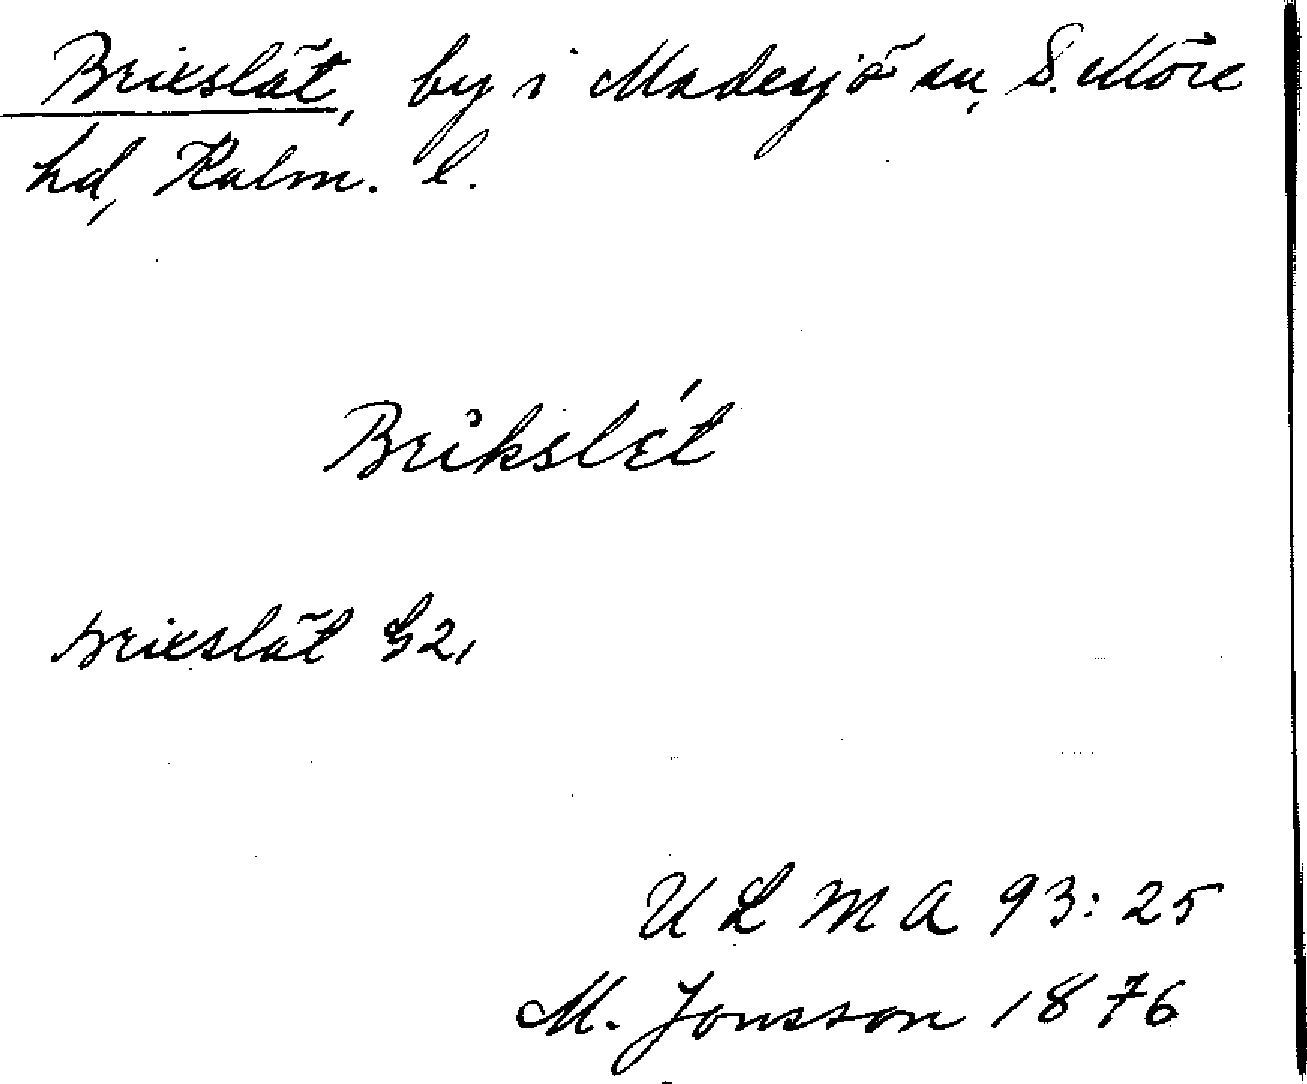 Brixslät, by i Madesjö sn, S. Möre
hd, Kalm. l.
Brikslét
Brixslät G2,
ULMA 93:25
M. Jonsson 1876